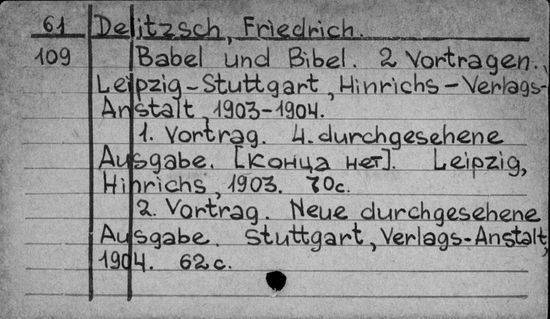 61 Delitzsch, Friedrich.
109 Babel und Bibel. 2 Vortragen.
Leipzig-Stuttgart, Hinrichs-Verlags-
Anstalt, 1903-1904.
1. Vortrag. 4. durchgesehene
Ausgabe. [конца нет]. Leipzig,
Hinrichs, 1903. 70c.
2. Vortrag. Neue durchgesehene
Ausgabe. Stuttgart, Verlags-Anstalt,
1904. 62c.